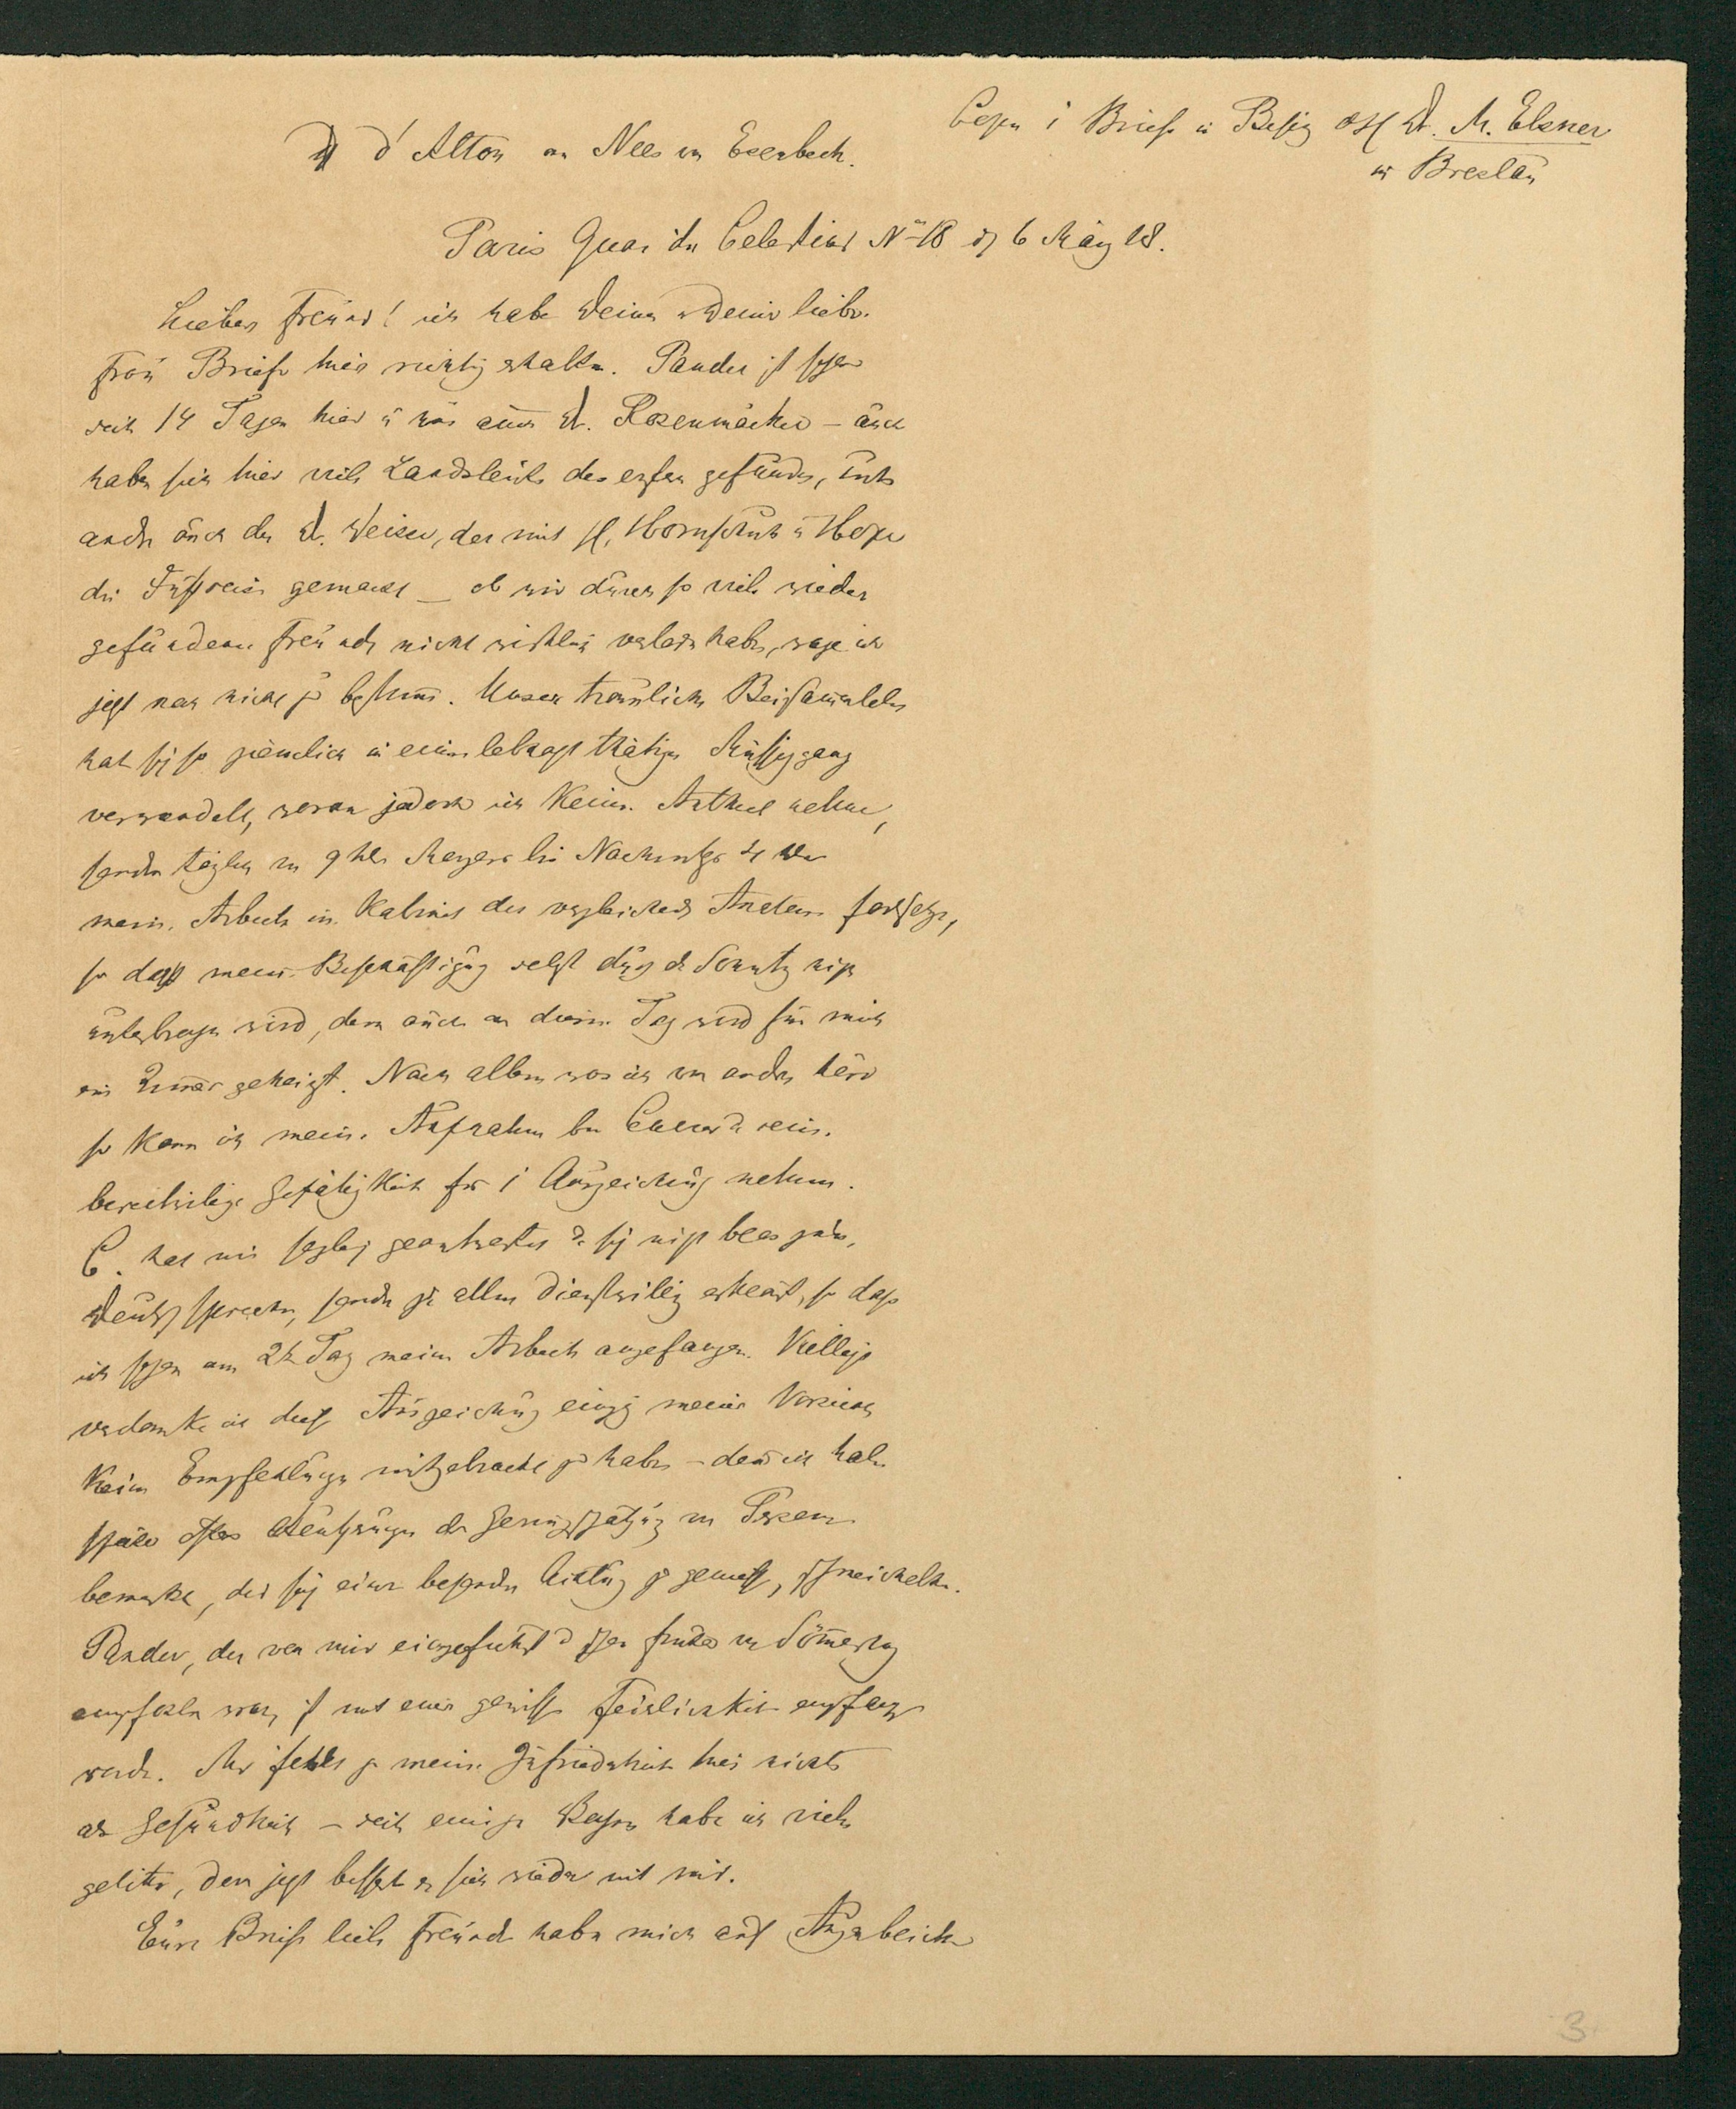 Copie i Briefs in Besitz des H Dr. M. Elsner
in Breslaŭ
d'Alton an Nees von Esenbeck.
Paris Quai des Celestins No 18 d 6 März 18.
Lieber Freŭnd! ich habe Deinen u Deiner lieben
Fraŭ Briefe hier richtig erhalten. Pander ist schon
seit 14 Tagen hier ŭ Dr. Rosenmüller – aŭch
haben sich hier viele Landsleŭte desselben gefŭnden, ŭnter
andern aŭch der Dr. Weise, der mit H. Hornschŭch ŭ Hope
die Fŭssreise gemacht – ob wir dŭrch so viele wieder
gefŭndene Freŭnde nicht verloren haben, wage ich
jetzt noch nicht zŭ bestimmen. Unser traŭliches Beisammenleben
hat sich so ziemlich in einen lebhaft thätigen Müssiggang
verwandelt, woran jedoch ich keinen Antheil nehme,
sondern täglich von 9 Uhr Morgens bis Nachmittags 4 Uhr
meine Arbeit im Kabinet der vergleichenden Anatomie fortsetze,
so dass meine Beschäftigŭng selbst dŭrch den Sonntag nicht
ŭnterbrochen wird, denn aŭch an diesem Tag wird für mich
ein Zimmer geheizt. Nach allem was ich von andern höre
so kann ich meine Aŭfnahme bei Cuvier ŭ seine
bereitwillige Gefälligkeit für 1 Aŭszeichnŭng nehmen.
C. hat mir sogleich geantwortet ŭ sich nicht blos
Deŭtsch sprechen, sondern zŭ allem dienstwillig erklärt, so dass
ich schon am 2ten Tag meine Arbeit angefangen. Vielleicht
verdanke ich diese Aŭszeichnŭng einzig meiner Vorsicht
keine Empfehlŭngen mitgebracht zŭ haben – denn ich habe
später öfters Aeŭsserŭngen der Geringschätzŭng von Personen
bemerkt, die sich einer besondern Achtŭng zŭ geniessen, schmeichelten.
Pander, der von mir eingeführt ŭ schon früher von Sömmering
empfohlen war, ist mit einer gewissen Feierlichkeit empfangen
worden. Mir fehlt zŭ meiner Zŭfriedenheit hier nichts
als Gesŭndheit – seit einigen Wochen habe ich viel
gelitten, denn jetzt bessert es sich wieder mit mir.
Eŭre Briefe liebe Freŭnde haben mich aŭf Aŭgenblicke